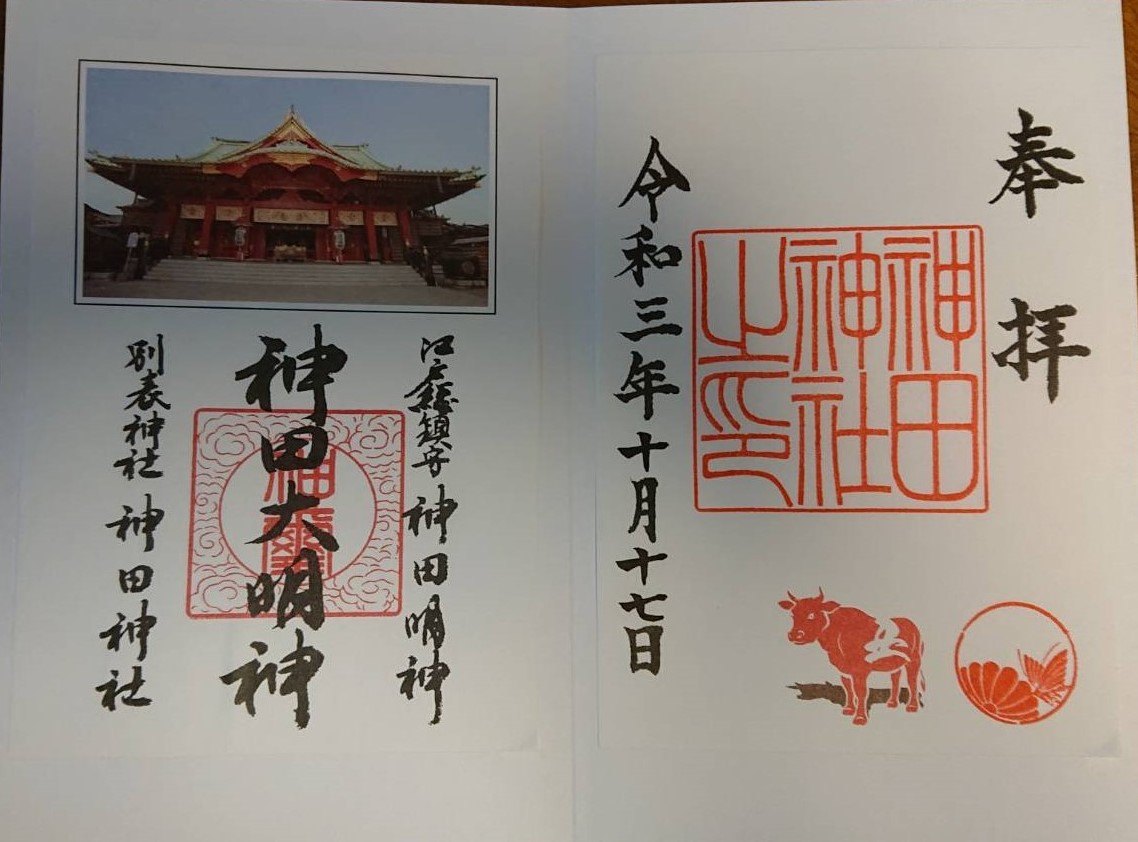 奉拝
神田
神社
之印
令和三年十月十七日
江戸総鎮守 神田明神
神田大明神
神璽
別表神社 神田神社